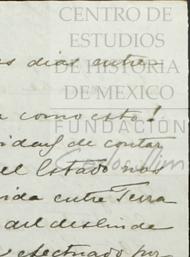 CENTRO DE
ESTUDIOS
DE HISTORIA
DE MEXICO
FUNDACIÓN
Carlos Slim
s dias entre-
como esto!
de contar
el Estado nos
ida entre Terra
del deslinde
efectuado por